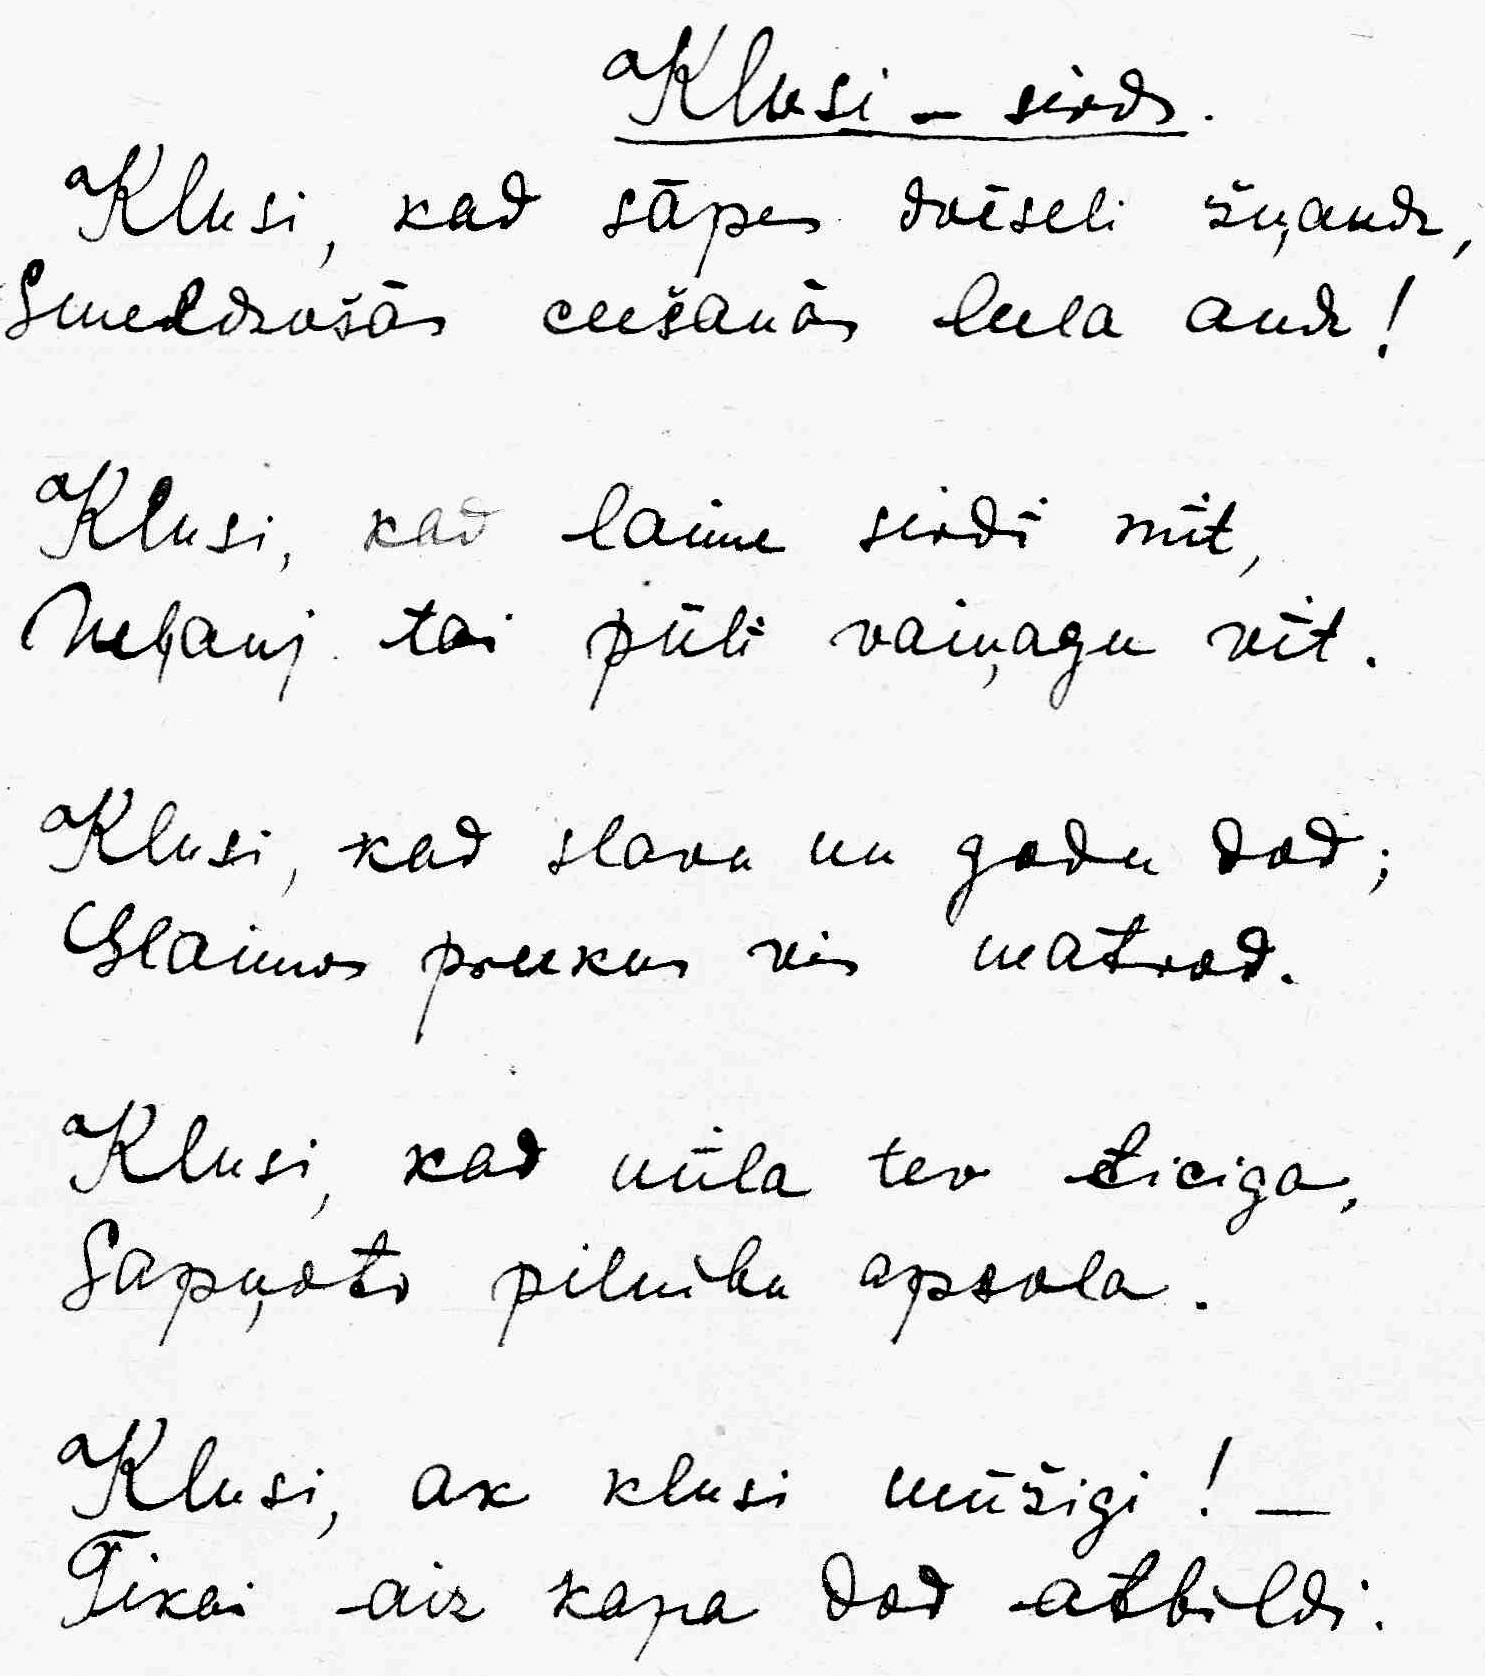 Klusi – sirds.
Klusi, kad sāpes dvēseli žņaudz,
Smeldzošās ciešanās liela audz!
Klusi, kad laime sirdī mīt,
Neļauj tai pūlī vaiņagu vīt.
Klusi, kad slavu un godu dod;
Glaimos priekus vis neatrod.
Klusi, kad mīla tev ticīga,
Sapņoto pilnību apsola.
Klusi, ak klusi mūžīgi! –
Tikai aiz kapa dod atbildi.